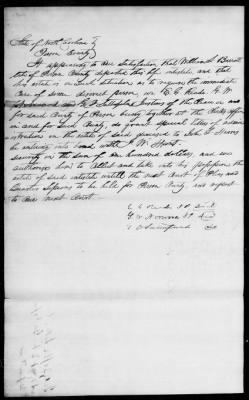 State of North Carolina
Person County
It appearing to our Satisfaction that William S. Barnett
late of Person County departed this life intestate and that
his estate is in such situation as to require the immediate
care of some discreet person, we E. G. Reade, G. W.
and Justices of the Peace in and
for said County of Person being together at the Clerks office
in and for said County, do grant special letters of admin
istration on the estate of said deceased to John
he entering into bond with W. Short
security in the sum of one hundred dollars, and we
authorize him to collect and take into his possession the
estate of said intestate untill the next Court of Pleas and
Quarter Sessions to be held for Person County and report
to our next Court
J.P. Seal
G. W. J.P. Seal